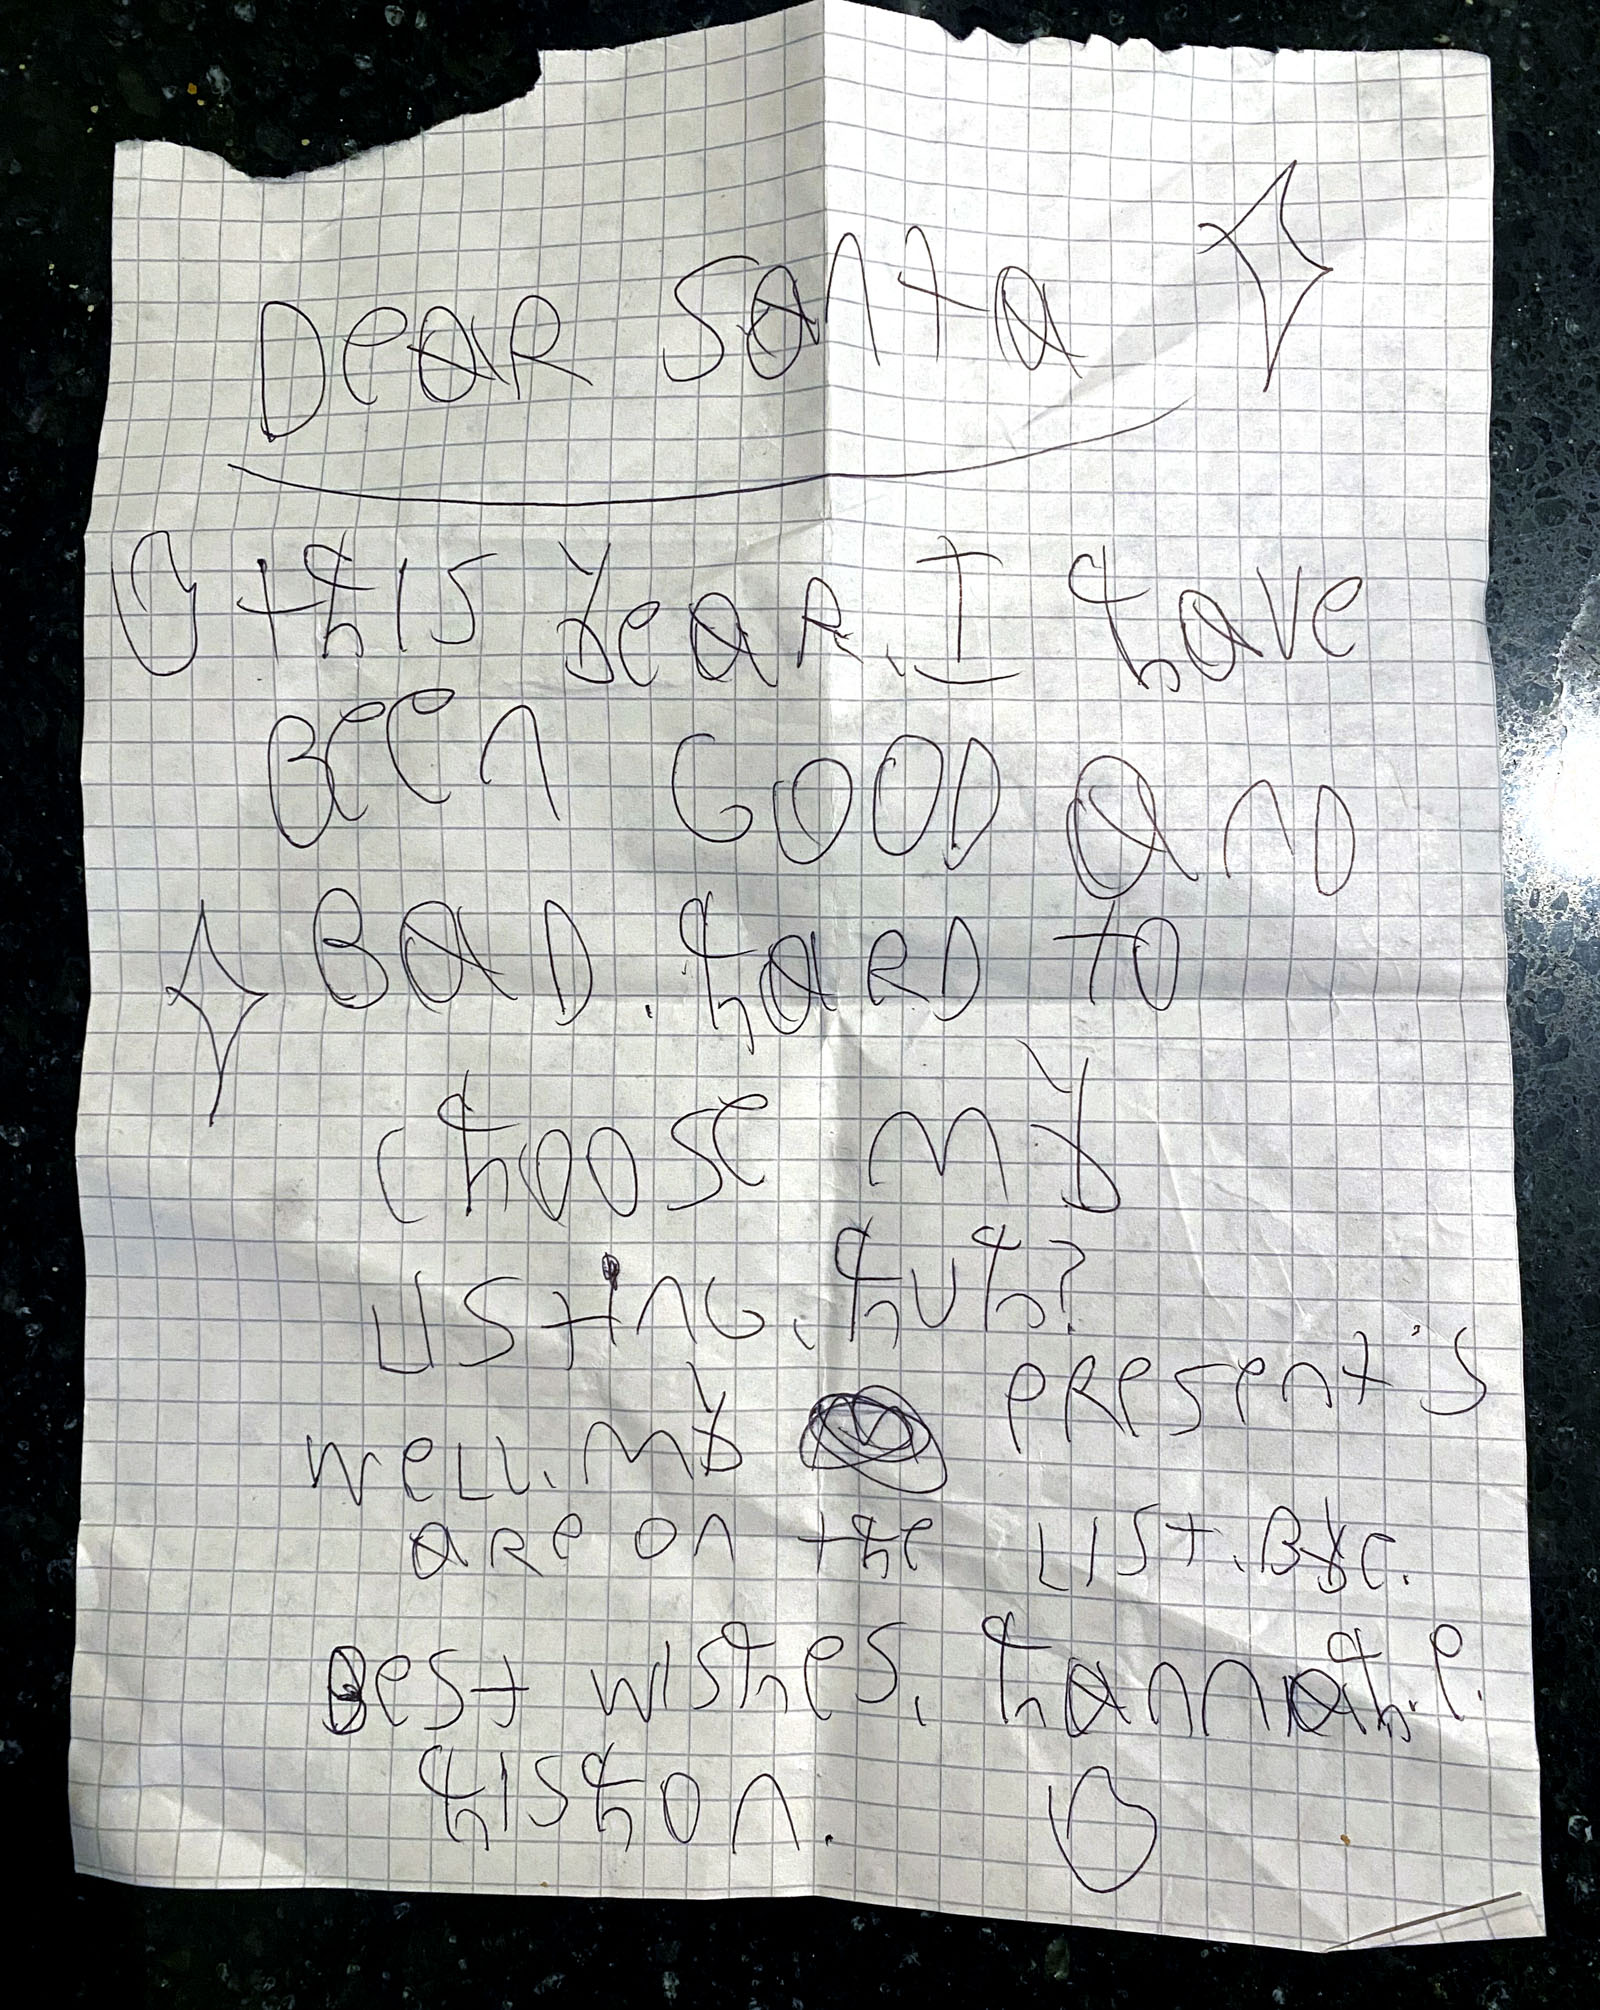 Dear Santa
this year. I have
Been GOOD anD
BaD. haRD to
choose my
LISting. huh?
well. my present's
are on the LIST. Bye.
Best wishes, hannah.P.
hishon.